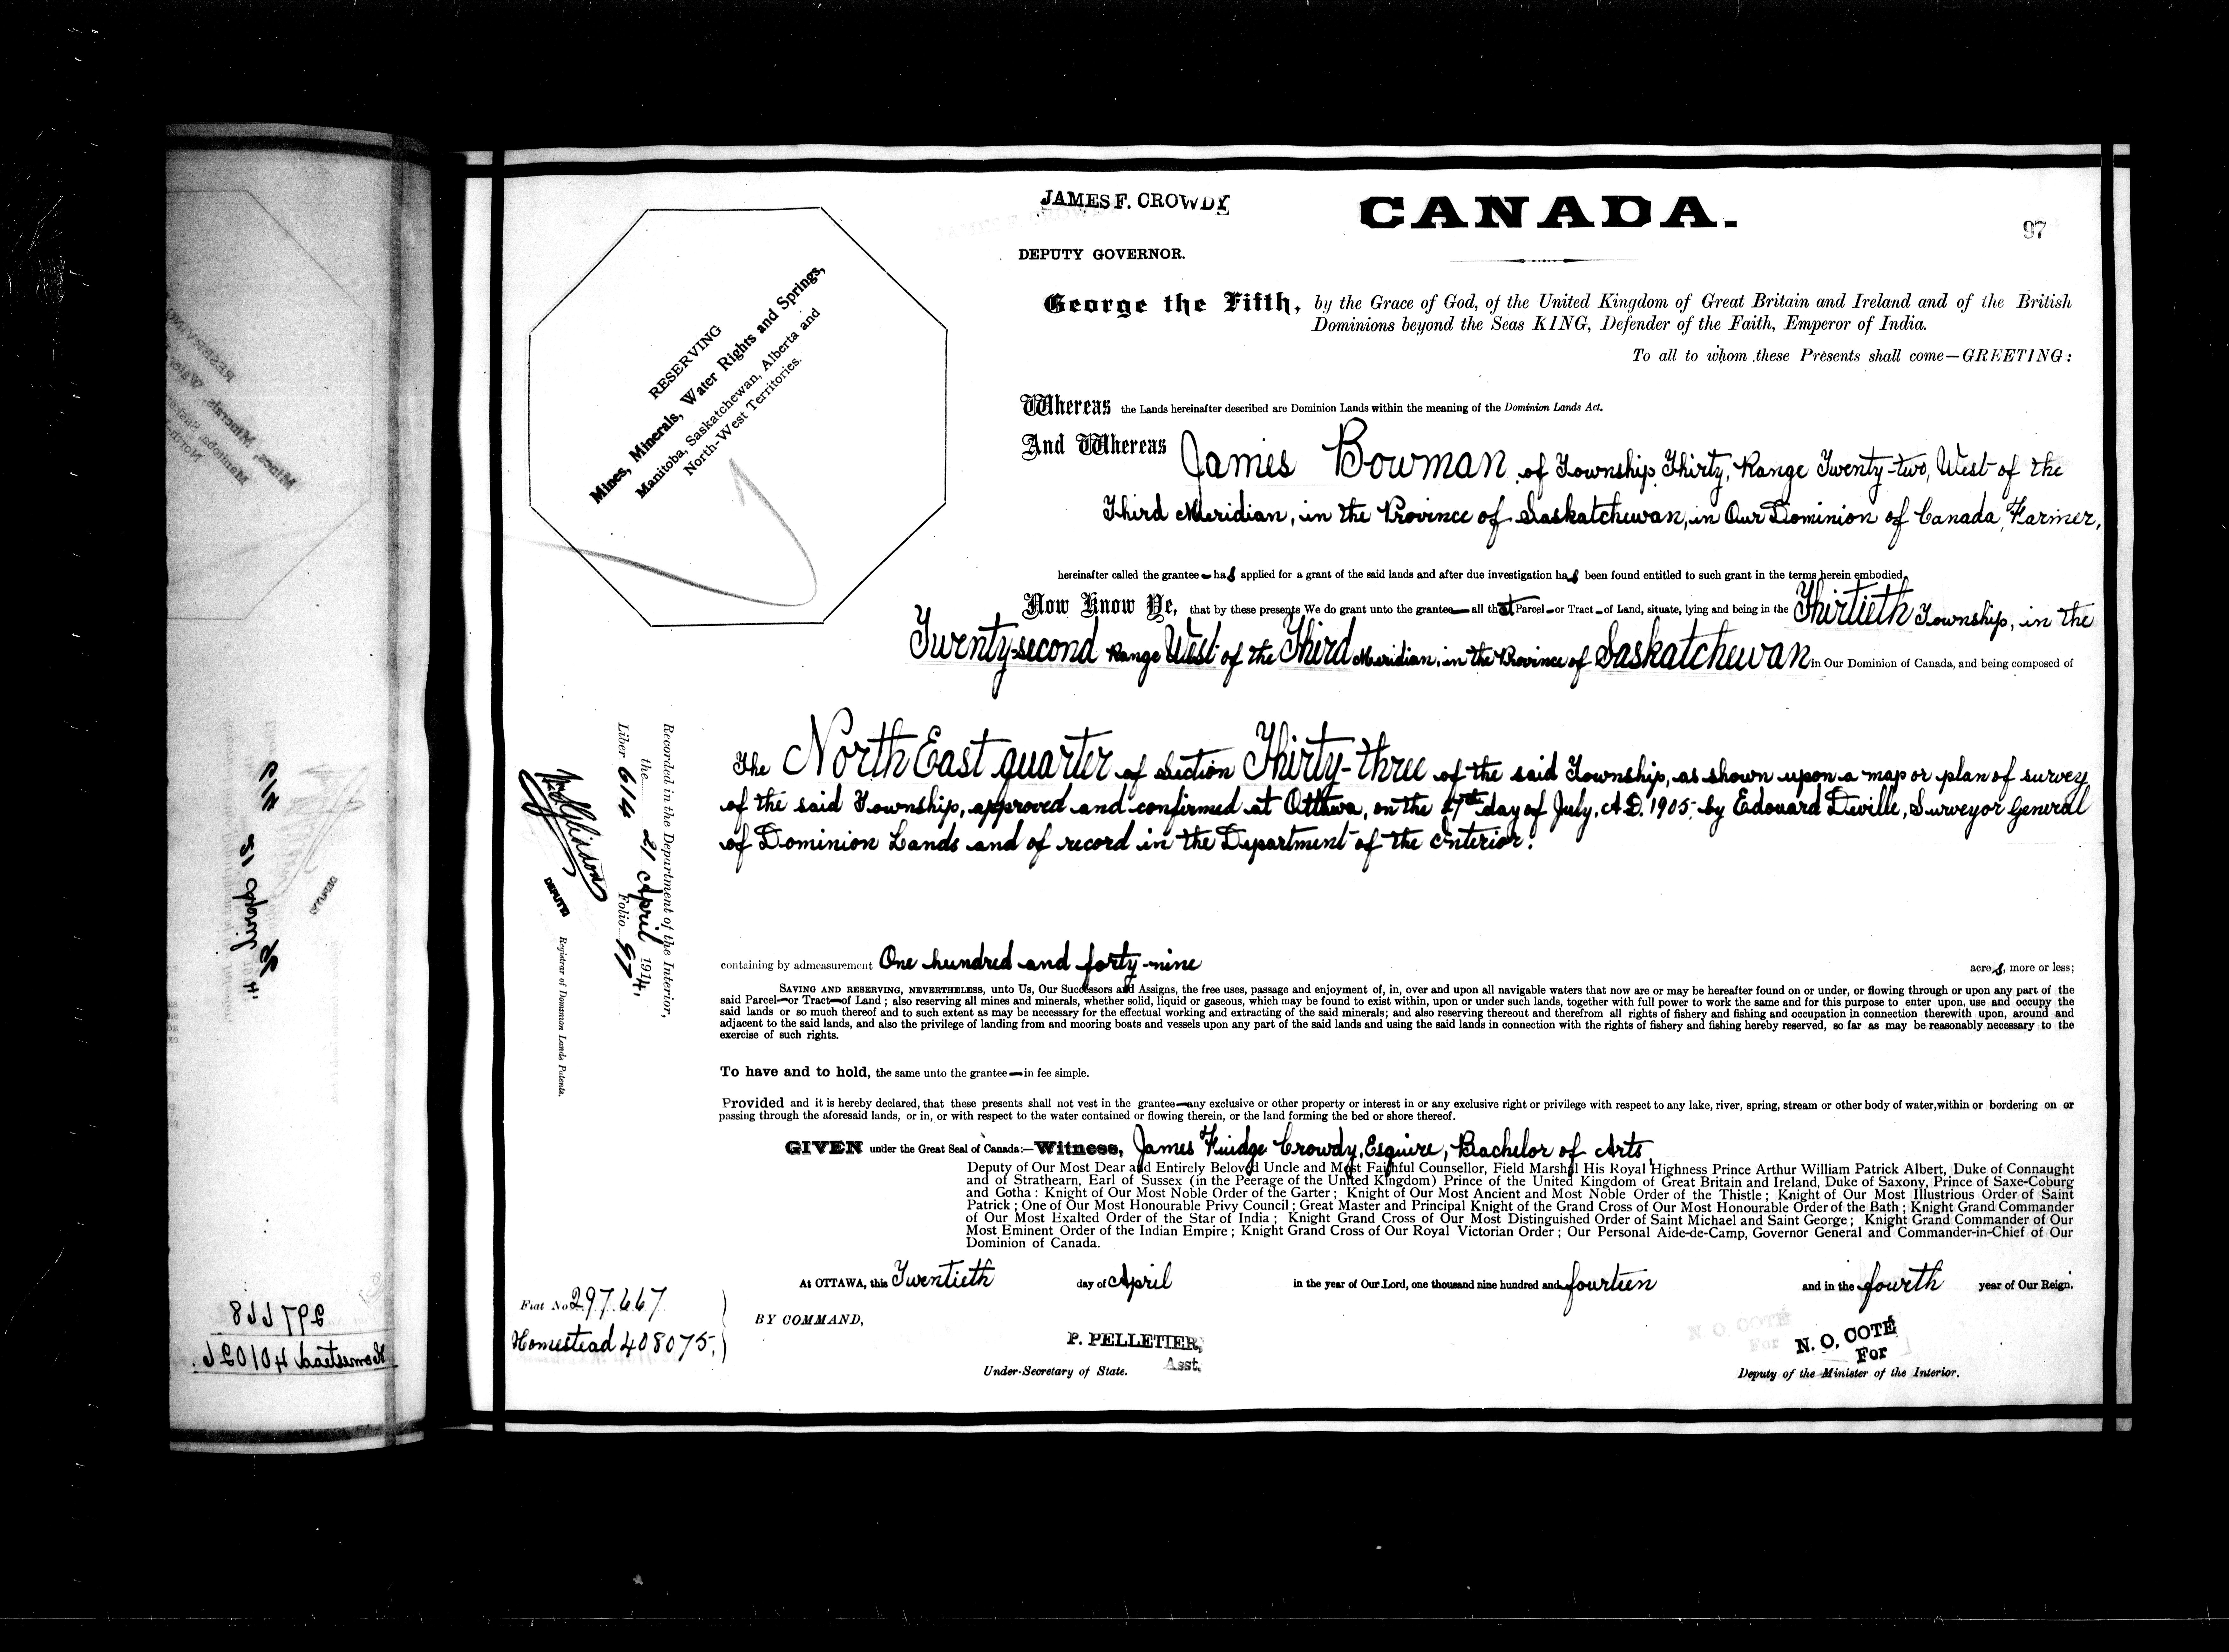 JAMES F. CROWDY
CANADA.
97
DEPUTY GOVERNOR.
RESERVING
Mines, Minerals, Water Rights and Springs,
Manitoba, Saskatchewan, Alberta and
North-West Territories.
George the Fifth, by the Grace of God, of the United Kingdom of Great Britain and Ireland and of the British
Dominions beyond the Seas KING, Defender of the Faith, Emperor of India.
To all to whom these Presents shall come—GREETING:
Whereas the Lands hereinafter described are Dominion Lands within the meaning of the Dominion Lands Act.
And Whereas James Bowman, of Township Thirty, Range Twenty-two, West of the
Third Meridian, in the Province of Saskatchewan, in Our Dominion of Canada, Farmer,
hereinafter called the grantee— has applied for a grant of the said lands and after due investigation has been found entitled to such grant in the terms herein embodied.
Now Know Ye, that by these presents We do grant unto the grantee— all that Parcel—or Tract—of Land, situate, lying and being in the Thirtieth Township, in the
Twenty-second Range West of the Third Meridian, in the Province of Saskatchewan in Our Dominion of Canada, and being composed of
The North East quarter of Section Thirty-three of the said Township, as shown upon a map or plan of survey
of the said Township, approved and confirmed at Ottawa, on the day of July, A.D. 1905, by Edouard Deville, Surveyor General
of Dominion Lands and of record in the Department of the Interior.
containing by admeasurement One hundred and forty-nine acres, more or less;
SAVING AND RESERVING, NEVERTHELESS, unto Us, Our Successors and Assigns, the free uses, passage and enjoyment of, in, over and upon all navigable waters that now are or may be hereafter found on or under, or flowing through or upon any part of the
said Parcel—or Tract—of Land; also reserving all mines and minerals, whether solid, liquid or gaseous, which may be found to exist within, upon or under such lands, together with full power to work the same and for this purpose to enter upon, use and occupy the
said lands or so much thereof and to such extent as may be necessary for the effectual working and extracting of the said minerals; and also reserving thereout and therefrom all rights of fishery and fishing and occupation in connection therewith upon, around and
adjacent to the said lands, and also the privilege of landing from and mooring boats and vessels upon any part of the said lands and using the said lands in connection with the rights of fishery and fishing hereby reserved, so far as may be reasonably necessary to the
exercise of such rights.
To have and to hold, the same unto the grantee—in fee simple.
Provided and it is hereby declared, that these presents shall not vest in the grantee—any exclusive or other property or interest in or any exclusive right or privilege with respect to any lake, river, spring, stream or other body of water, within or bordering on or
passing through the aforesaid lands, or in, or with respect to the water contained or flowing therein, or the land forming the bed or shore thereof.
GIVEN under the Great Seal of Canada:—Witness, James Fuidge Crowdy, Esquire, Bachelor of Arts,
Deputy of Our Most Dear and Entirely Beloved Uncle and Most Faithful Counsellor, Field Marshal His Royal Highness Prince Arthur William Patrick Albert, Duke of Connaught
and of Strathearn, Earl of Sussex (in the Peerage of the United Kingdom) Prince of the United Kingdom of Great Britain and Ireland, Duke of Saxony, Prince of Saxe-Coburg
and Gotha: Knight of Our Most Noble Order of the Garter; Knight of Our Most Ancient and Most Noble Order of the Thistle; Knight of Our Most Illustrious Order of Saint
Patrick; One of Our Most Honourable Privy Council; Great Master and Principal Knight of the Grand Cross of Our Most Honourable Order of the Bath; Knight Grand Commander
of Our Most Exalted Order of the Star of India; Knight Grand Cross of Our Most Distinguished Order of Saint Michael and Saint George; Knight Grand Commander of Our
Most Eminent Order of the Indian Empire; Knight Grand Cross of Our Royal Victorian Order; Our Personal Aide-de-Camp, Governor General and Commander-in-Chief of Our
Dominion of Canada.
At OTTAWA, this Twentieth day of April in the year of Our Lord, one thousand nine hundred and fourteen and in the fourth year of Our Reign.
BY COMMAND,
P. PELLETIER,
Asst.
Under-Secretary of State.
N. O. COTÉ
For
Deputy of the Minister of the Interior.
Recorded in the Department of the Interior,
the 21 April 1914,
Liber 614 Folio 97
DEPUTY
Registrar of Dominion Lands Patents.
Fiat No 297667
Homestead 408075.